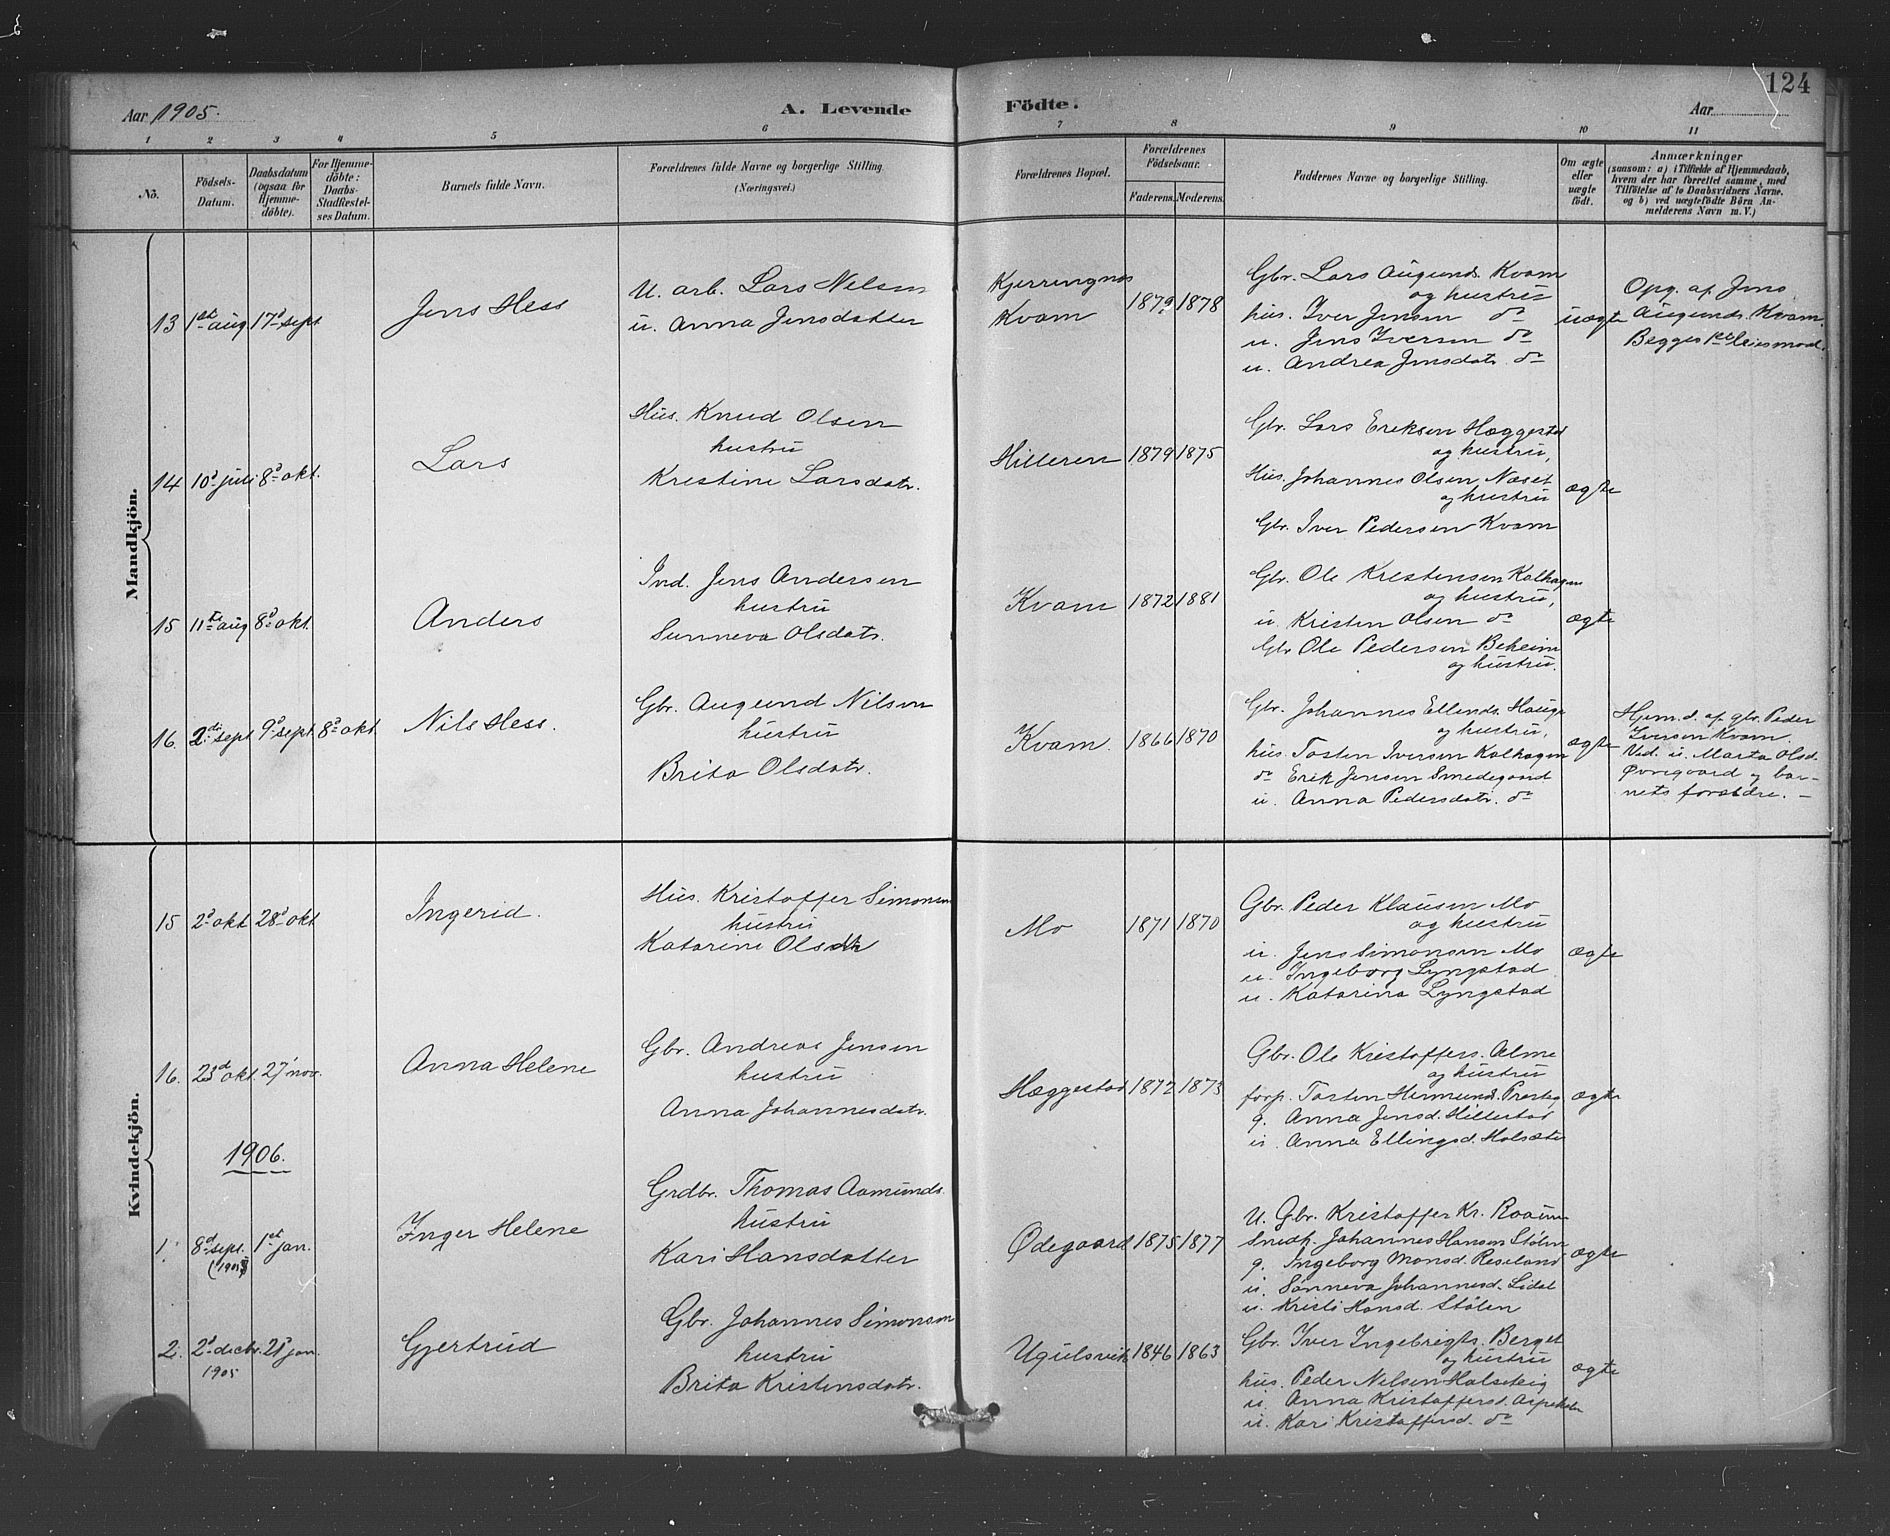 124
Aar 1905.
A. Levende
Födte.
Aar
1 2 3 4 5 6 7 8 9 10 11
No.
Födsels-Datum.
Daabsdatum (ogsaa for Hjemme-döbte).
For Hjemme-döbte: Daabs-Stadfæstel-ses Datum.
Barnets fulde Navn.
Forældrenes fulde Navne og borgerlige Stilling.
(Næringsvei.)
Forældrenes Bopæl.
Forældrenes Födselsaar.
Faderens. Moderens.
Faddernes Navne og borgerlige Stilling.
Om ægte eller uægte födt.
Anmærkninger
(saasom: a) i Tilfælde af Hjemmedaab,
hvem der har forrettet samme, med
Tilföielse af to Daabsvidners Navne.
og b) ved uægtefödte Börn An-
melderens Navn m. V.)
Mandkjön.
13 1st aug 17d sept
Jens Hess
U. arb. Lars Nelsen
u. Anna Jensdatter
Kjerringnes
Kvam
1879 1878
Gbr. Lars Augunds. Kvam
og hustru
hus. Iver Jensen do
u. Jens Iversen do
u. Andrea Jensdatr. do
uægte
Opg. af Jens
Augunds. Kvam.
Begges 1ste leiesmaal.
14 10d juli 8d okt.
Lars
Hus. Knud Olsen
hustru
Krestine Larsdatr.
Hilleren
1879 1875
Gbr. Lars Eriksen Hæggestad
og hustru,
Hus. Johannes Olsen Næset
og hustru
Gbr. Iver Pedersen Kvam
ægte
15 11te aug 8d okt.
Anders
Ind. Jens Andersen
hustru
Sunneva Olsdatr.
Kvam
1872 1881
Gbr. Ole Krestensen Kalhagen
og hustru,
u. Kristen Olsen do
Gbr Ole Pedersen Beheim
og hustru.
ægte
16 2de sept 9d sept 8d okt.
Nils Hess.
Gbr. Augund Nilsen
hustru
Brita Olsdatr.
Kvam.
1866 1870
Gbr. Johannes Ellends. Hauge
og hustru,
hus. Tosten Iversen Kalhagen
do Erik Jensen Smedegaard
u. Anna Pedersdatr. do
ægte
Hjem.d. af gbr. Peder
Iversen Kvam.
Vid. u. Marta Olsd.
Øvregaard og bar-
nets forældre. —
Kvindekjön.
15 2d okt 28d okt
Ingerid.
Hus. Kristoffer Simonsen
hustru
Katarine Olsdtr
Mo
1871 1870
Gbr. Peder Klausen Mo
og hustru
u. Jens Simonsen Mo
u. Ingeborg Lyngstad
u. Katarina Lyngstad
ægte
16. 23d okt. 27' nov.
Anna Helene
Gbr. Andreas Jensen
hustru
Anna Johannesdatr.
Hæggestad
1872 1873
Gbr. Ole Kristoffers. Alme
og hustru
forp. Tosten Hermunds. Presteg
g. Anna Jensd. Hillestad
u. Anna Ellingsd. Halsæter
ægte
1906.
1. 8d sept. (1905) 1st jan.
Inger Helene
Grdbr. Thomas Aamunds.
hustru
Kari Hansdatter
Ødegaard
1875 1877
U. Gbr. Kristoffer Kr. Raaum
Snedk. Johannes Hansen Stølen
g. Ingeborg Monsd. Reseland
u. Sønneva Johannesd. Lidal
u. Kristi Hansd. Stølen
ægte
2. 2d decbr. 1905 21d jan.
Gjertrud
Gbr. Johannes Simonsen
hustru
Brita Kristensdatr.
Ugulsvik
1846 1863
Gbr. Iver Ingebrigts. Berget
og hustru
hus. Peder Nilsen Halsteig
u. Anna Kristoffersd.
u. Kari Kristoffersd. do
ægte